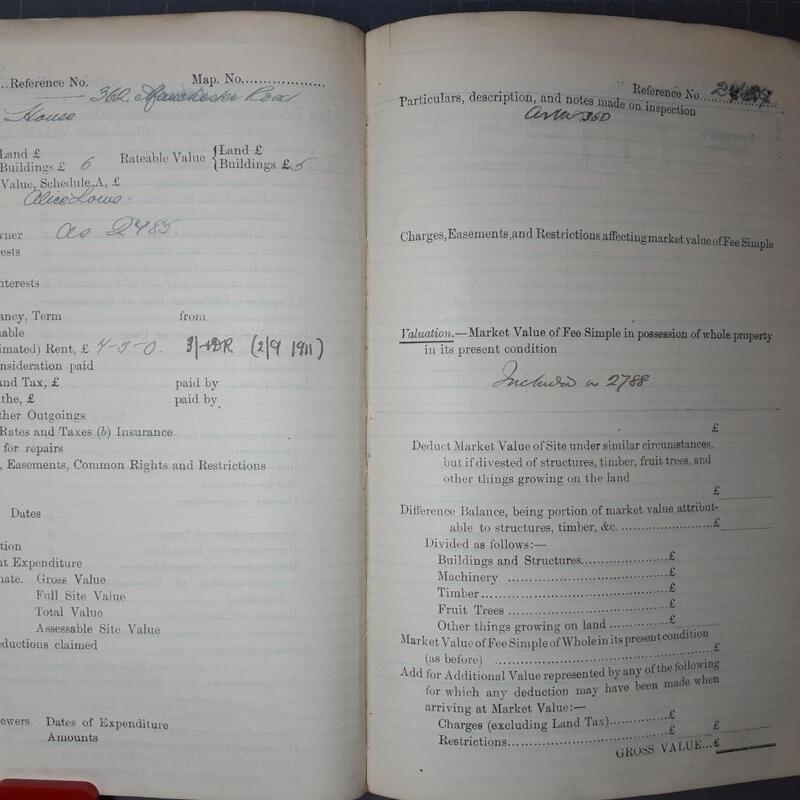 ...Reference No.    Map. No..................
362 Manchester Road
House
Land £    Rateable Value { Land £
Buildings £ 6    Buildings £ 5
Value, Schedule A, £
Alice Lowe
wner as 2485.
ests
nterests
ancy, Term    from
nable
imated) Rent, £ 4-3-0. (2/9 1911)
nsideration paid
and Tax, £    paid by
the, £    paid by
ther Outgoings
Rates and Taxes (b) Insurance
for repairs
, Easements, Common Rights and Restrictions
Dates
tion
nt Expenditure
nate. Gross Value
Full Site Value
Total Value
Assessable Site Value
eductions claimed
ewers. Dates of Expenditure
Amounts
Reference No
Particulars, description, and notes made on inspection
as No 360
Charges, Easements, and Restrictions affecting market value of Fee Simple
Valuation.—Market Value of Fee Simple in possession of whole property
in its present condition
Included in 2788
£
Deduct Market Value of Site under similar circumstances,
but if divested of structures, timber, fruit trees, and
other things growing on the land
£
Difference Balance, being portion of market value attribut-
able to structures, timber, &c. ......................£
Divided as follows:—
Buildings and Structures......................£
Machinery ......................................£
Timber...........................................£
Fruit Trees ......................................£
Other things growing on land ...............£
Market Value of Fee Simple of Whole in its present condition
(as before) ..............................................£
Add for Additional Value represented by any of the following
for which any deduction may have been made when
arriving at Market Value:—
Charges (excluding Land Tax)...............£
Restrictions.......................................£    £
GROSS VALUE...£